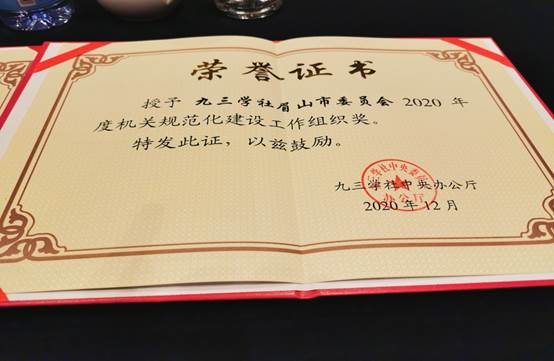 荣誉证书
授予 九三学社眉山市委员会 2020 年
度机关规范化建设工作组织奖。
特发此证，以兹鼓励。
九三学社中央办公厅
2020 年 12 月